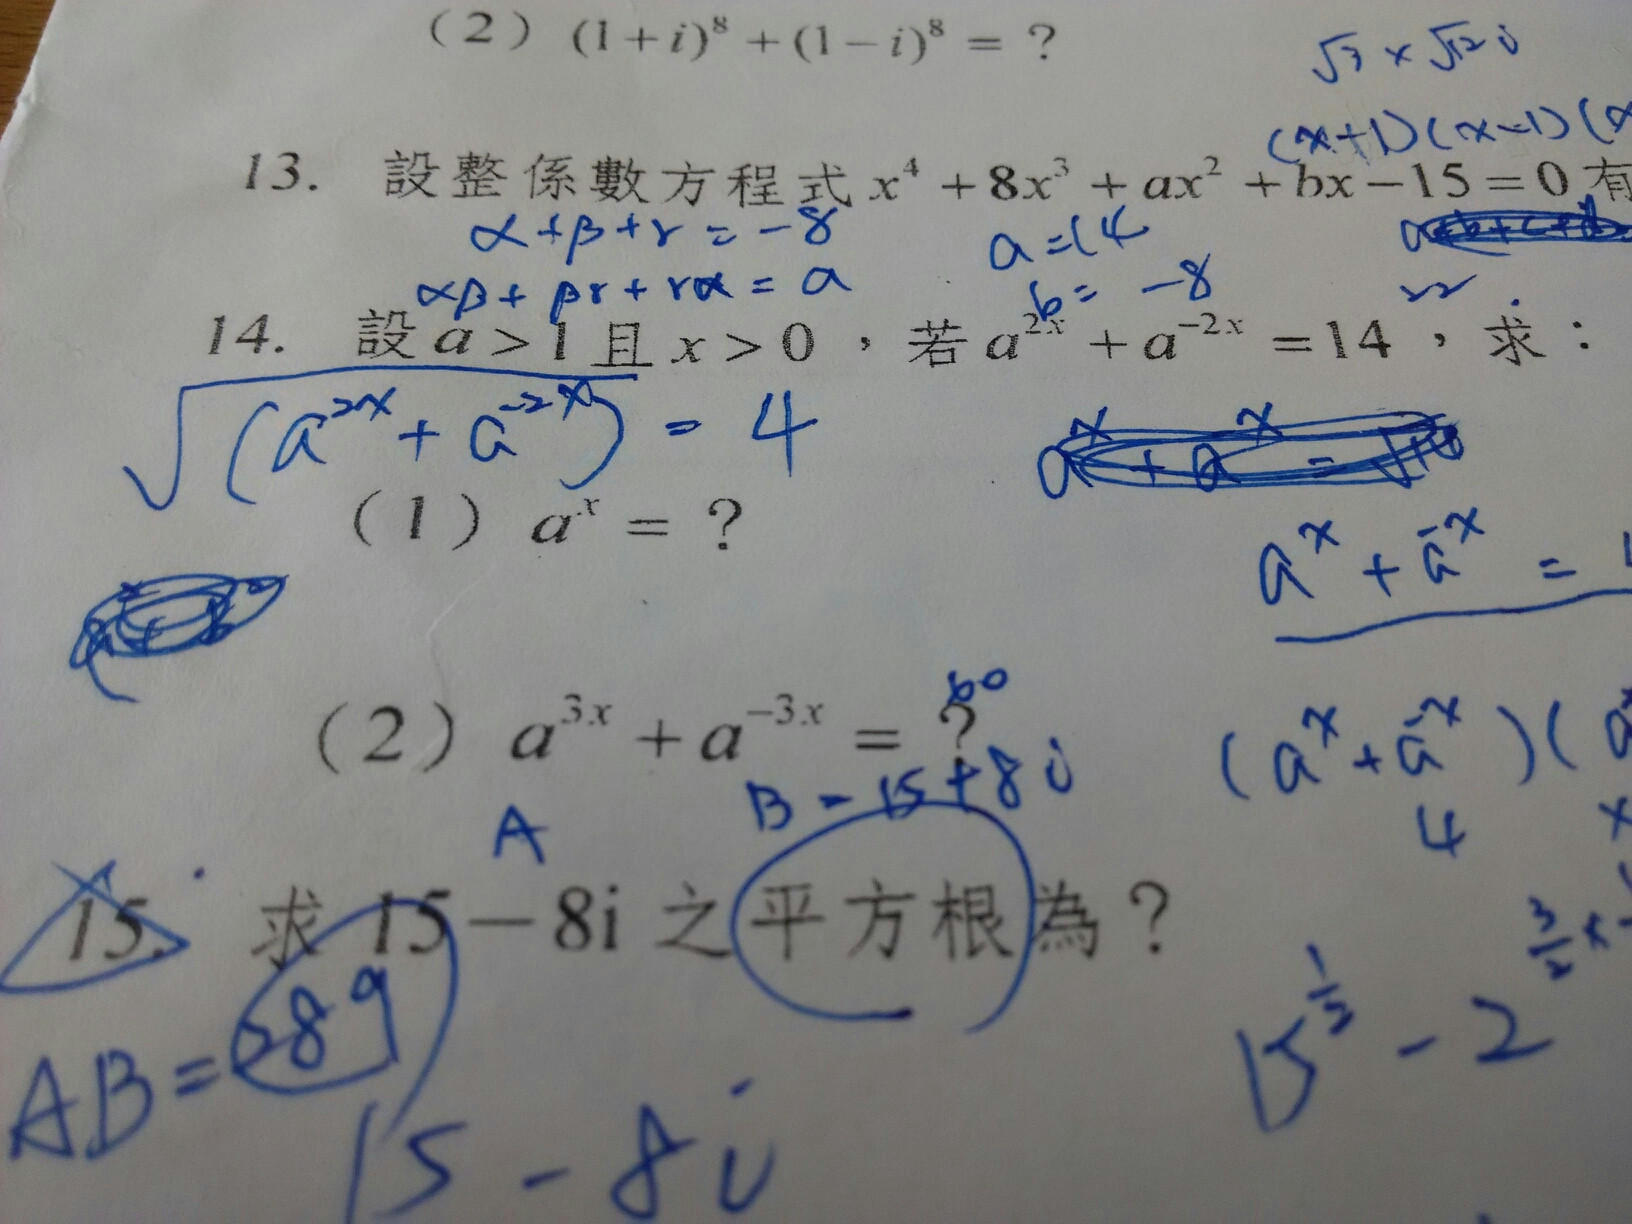 (2) (1+i)⁸+(1−i)⁸ = ?
√3 × √12 i
(x+1)(x-1)(x
13. 設整係數方程式 x⁴+8x³+ax²+bx−15=0 有
α+β+r = -8
a=14
αβ+βr+rα = a
b= -8
14. 設 a>1 且 x>0,若 a²ˣ+a⁻²ˣ=14,求:
√(a²ˣ+a⁻²ˣ) = 4
(1) aˣ = ?
aˣ+a⁻ˣ =
(2) a³ˣ+a⁻³ˣ = ?
(aˣ+a⁻ˣ)(a
4
A
B = 15+8i
15. 求 15−8i 之平方根為?
AB=289
15^½ - 2^
15-8i